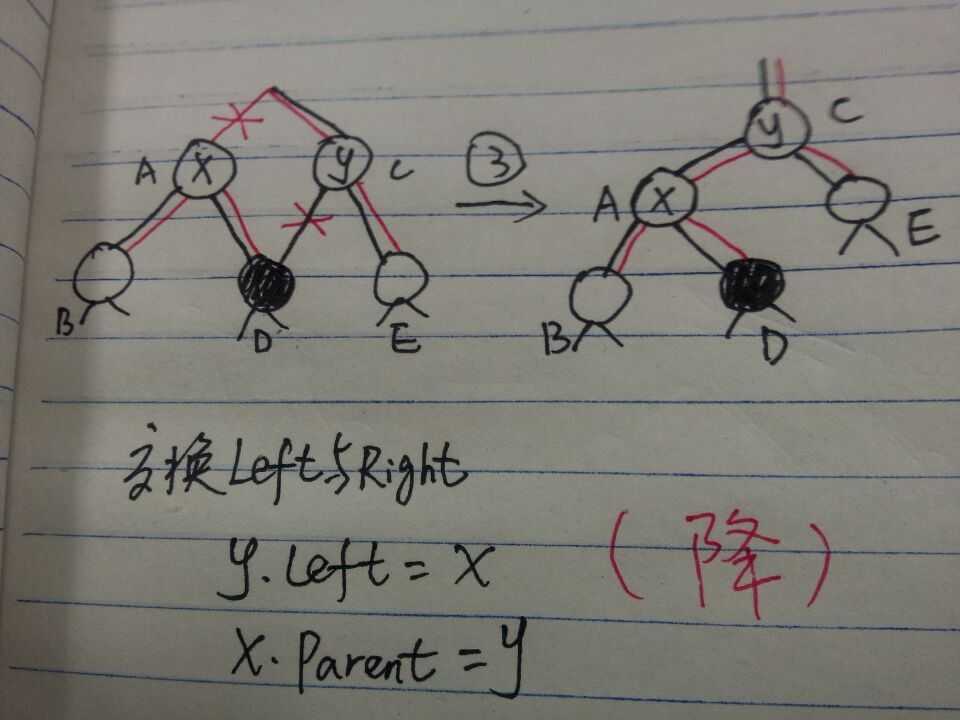 A X y C ③ y C
B D E A X E
B D
交换Left与Right
y.Left = X (降)
X.Parent = y